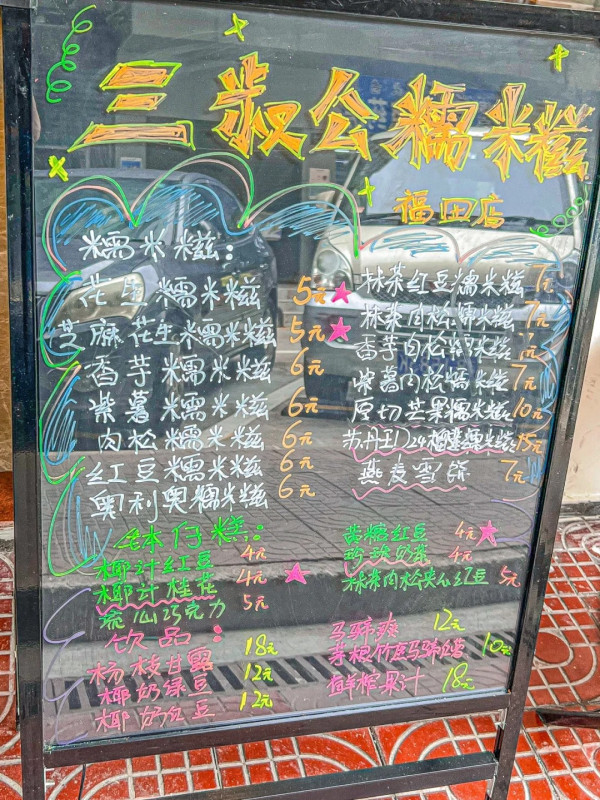 三叔公糯米糍
福田店
糯米糍：
花生糯米糍 5元
芝麻花生糯米糍 5元
香芋糯米糍 6元
紫薯糯米糍 6元
肉松糯米糍 6元
红豆糯米糍 6元
奥利奥糯米糍 6元
抹茶红豆糯米糍 7元
抹茶肉松糯米糍 7元
香芋肉松糯米糍 7元
紫薯肉松糯米糍 7元
原切芒果糯米糍 10元
苏丹王D24榴莲糯米糍 15元
燕麦雪饼 7元
钵仔糕：
椰汁红豆 4元
椰汁桂花 4元
流心巧克力 5元
黄糖红豆 4元
珍珠奶茶 4元
抹茶肉松夹心红豆 5元
饮品：
杨枝甘露 18元
椰奶绿豆 12元
椰奶红豆 12元
马蹄爽 12元
茅根竹蔗马蹄 10元
鲜榨果汁 18元